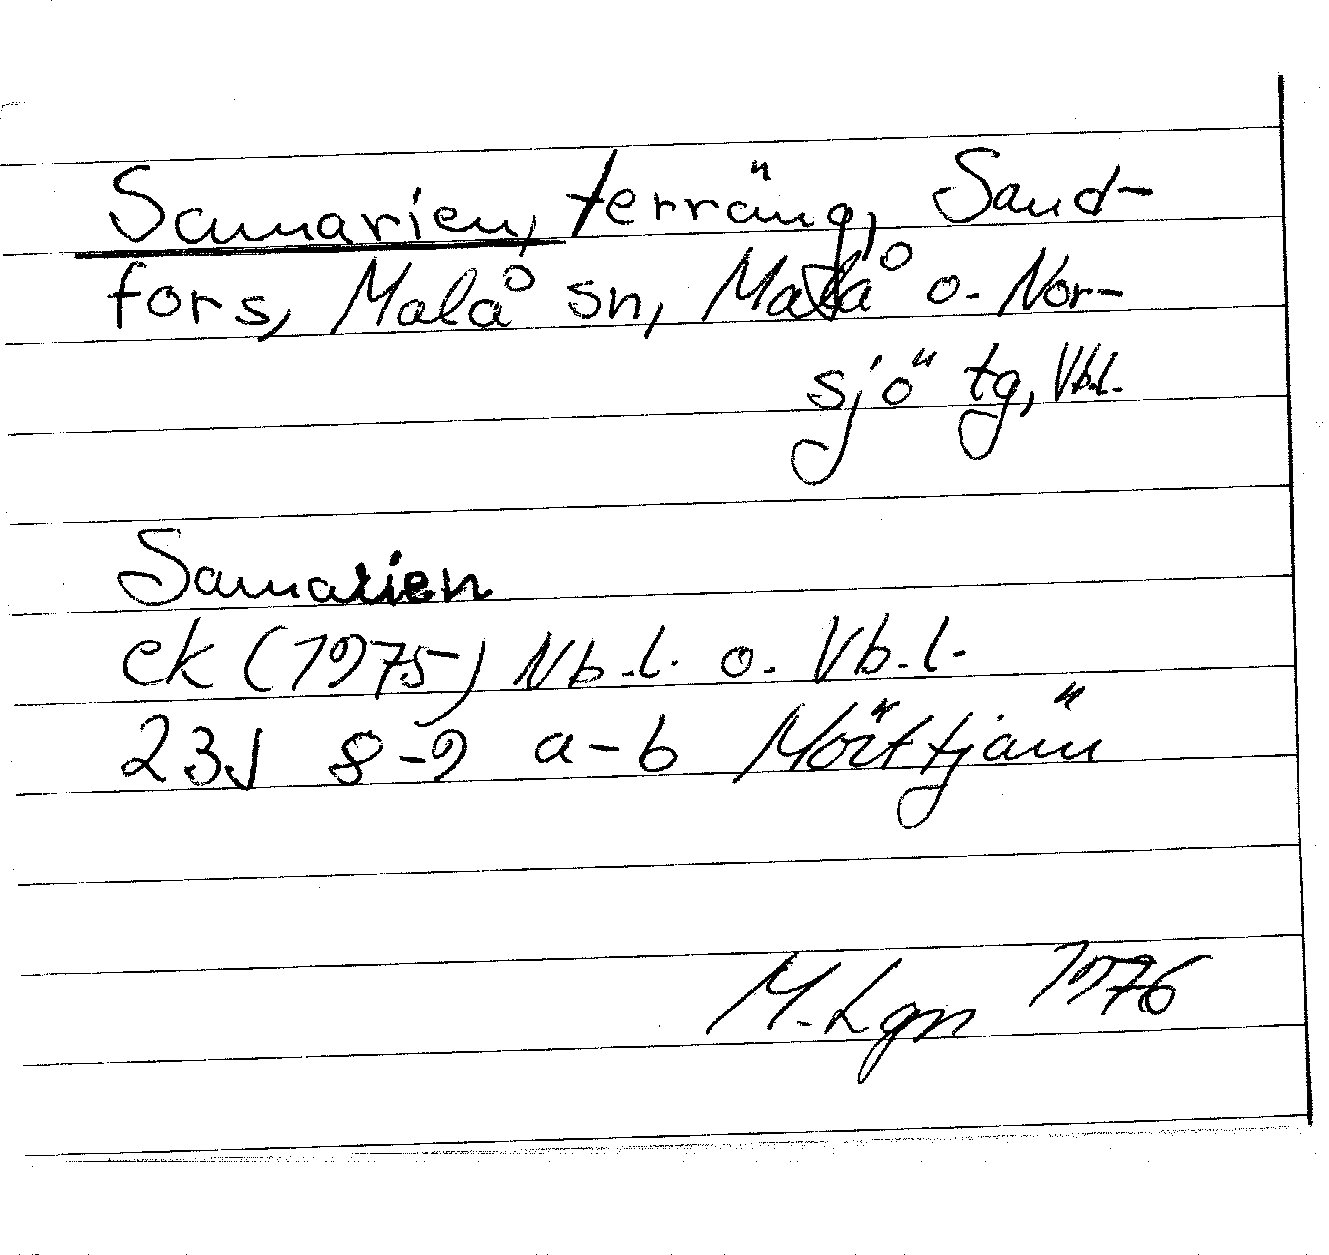 Samarien, terräng, Sand-
fors, Malå sn, Malå o. Nor-
sjö tg, Vb.l.
Samarien
ek (1975) Nb.l. o. Vb.l.
23J 8-9 a-b Mörttjärn
M. Lgn 1976